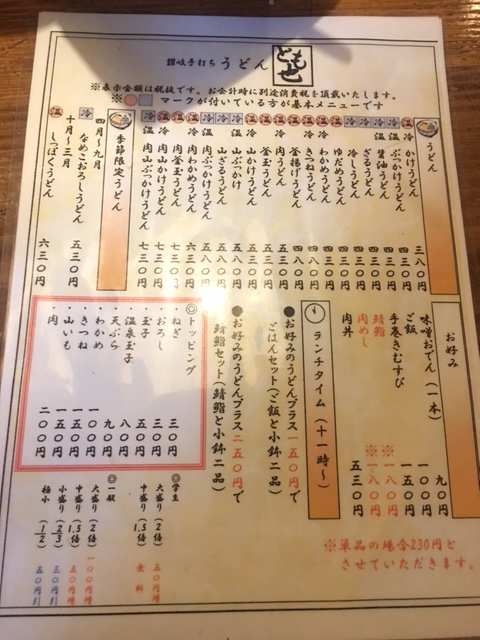 讃岐手打ちうどん
ともせ
※表示金額は税抜です。お会計時に別途消費税を頂戴いたします。
※温冷マークが付いている方が基本メニューです
うどん
温冷 かけうどん 三八〇円
ぶっかけうどん 四三〇円
醤油うどん 四三〇円
ざるうどん 四三〇円
冷しうどん 四三〇円
ゆだめうどん 四三〇円
わかめうどん
きつねうどん
釜揚げうどん 四八〇円
肉うどん 五三〇円
釜玉うどん 五三〇円
山かけうどん 五三〇円
山ぶっかけ 五八〇円
山ざるうどん 五八〇円
肉ぶっかけうどん 五八〇円
肉冷しうどん 六三〇円
肉釜玉うどん 七三〇円
肉山かけうどん 七三〇円
肉山ぶっかけうどん 七三〇円
季節限定うどん
四月~九月
冷 なめこおろしうどん 五三〇円
十月~三月
温 しっぽくうどん 六三〇円
お好み
味噌おでん(一本) 九〇円
ご飯 一〇〇円
手巻きむすび 一五〇円
鯖鮨 ※一八〇円
肉めし ※一八〇円
肉丼 五三〇円
※単品の場合230円と
させていただきます。
ランチタイム(十一時~)
●お好みのうどんプラス一五〇円で
ごはんセット(ご飯と小鉢二品)
●お好みのうどんプラス二五〇円で
鯖鮨セット(鯖鮨と小鉢二品)
◎トッピング
・ねぎ 三〇円
・おろし 三〇円
・玉子 五〇円
・温泉玉子 八〇円
・天ぷら 九〇円
・わかめ 一〇〇円
・きつね 一五〇円
・山いも 一五〇円
・肉 二〇〇円
◎学生
大盛り(2倍) 五〇円増
中盛り(1.5倍) 無料
◎一般
大盛り(2倍) 一〇〇円増
中盛り(1.5倍) 五〇円増
小盛り(2/3) 三〇円引
極小(1/2) 五〇円引